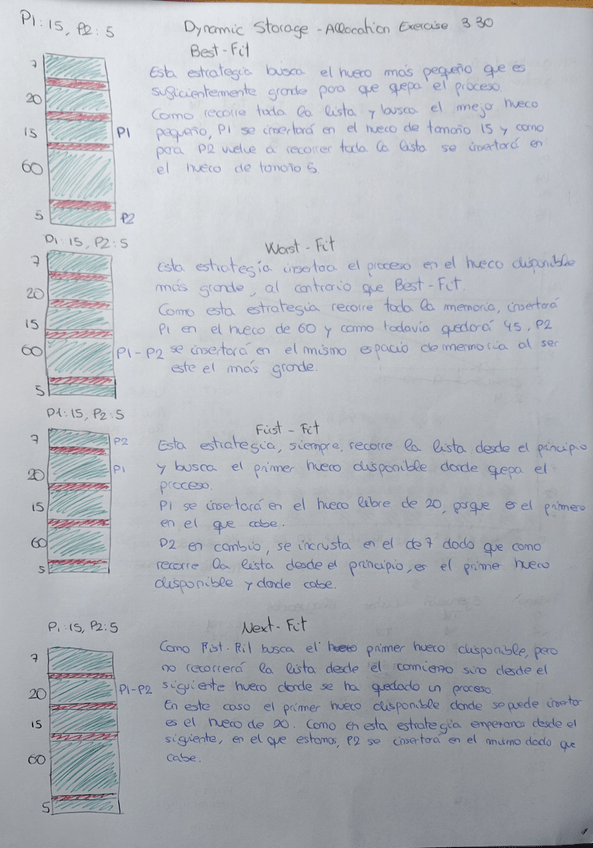 P1: 15, P2: 5
Dynamic Storage - Allocation Exercise 3.30
Best-Fit
7
20
15 P1
60
5 P2
Esta estrategia busca el hueco más pequeño que es
suficientemente grande para que qepa el proceso
Como recorre toda la lista y busca el mejor hueco
pequeño, P1 se insertará en el hueco de tamaño 15 y como
para P2 vuelve a recorrer toda la lista se insertará en
el hueco de tamaño 5.
P1: 15, P2: 5
Worst-Fit
7
20
15
60 P1-P2
5
Esta estrategía insertaa el proceso en el hueco disponible
más grande, al contrario que Best-Fit.
Como esta estrategia recorre toda la memoria, insertará
P1 en el hueco de 60 y como todavía quedará 45, P2
se insertará en el mismo espacio de memoria al ser
este el más grande.
P1: 15, P2: 5
First-Fit
7 P2
20 P1
15
60
5
Esta estrategia, siempre, recorre la lista desde el principio
y busca el primer hueco disponible donde qepa el
proceso.
P1 se insertará en el hueco libre de 20, porque es el primero
en el que cabe.
P2 en cambio, se incrusta en el de 7 dado que como
recorre la lista desde el principio, es el primer hueco
disponible y donde cabe.
P1: 15, P2: 5
Next-Fit
7
20 P1-P2
15
60
5
Como Fist-Fit busca el primer hueco disponible, pero
no recorrerá la lista desde el comienzo sino desde el
siguiente hueco donde se ha quedado un proceso.
En este caso el primer hueco disponible donde se puede insertar
es el hueco de 20. Como en esta estrategia empezamos desde el
sigiente, en el que estamos, P2 se insertará en el mismo dado que
cabe.